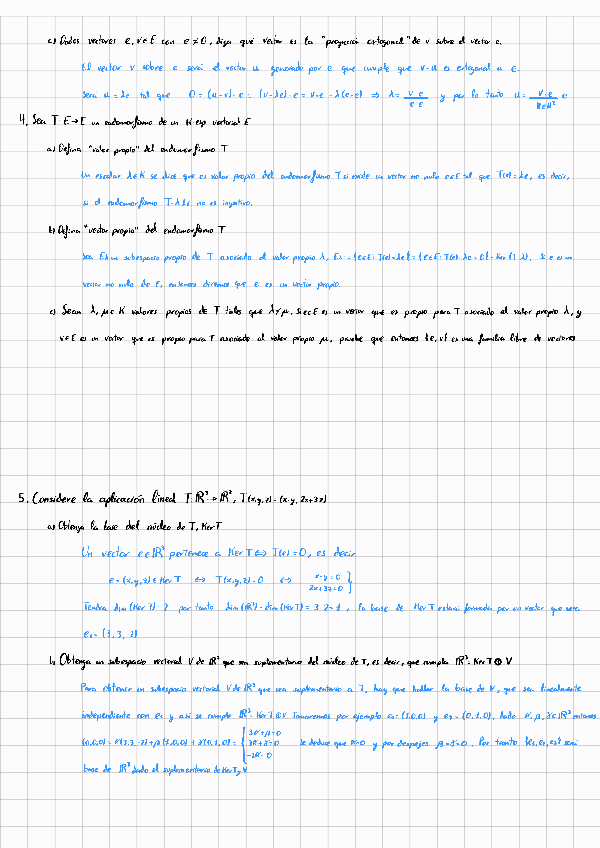 c) Dados vectores e, v ∈ E con e ≠ 0, diga qué vector es la "proyección ortogonal" de v sobre el vector e.
El vector v sobre e será el vector u generado por e que cumple que v-u es ortogonal a e.
Será u = λe tal que 0 = (u-v)·e = (v-λe)·e = v·e - λ(e·e) ⇒ λ = v·e / e·e y por lo tanto u = v·e / ||e||² e
4. Sea T: E → E un endomorfismo de un K-esp vectorial E
a) Defina "valor propio" del endomorfismo T
Un escalar λ ∈ K se dice que es valor propio del endomorfismo T si existe un vector no nulo e ∈ E tal que T(e) = λe, es decir,
si el endomorfismo T-λId no es inyectivo.
b) Defina "vector propio" del endomorfismo T
Sea Eλ un subespacio propio de T asociado al valor propio λ, Eλ = {e∈E: T(e)=λe} = {e∈E: T(e)-λe=0} = Ker(T-λ). Si e es un
vector no nulo de E, entonces diremos que e es un vector propio.
c) Sean λ, μ ∈ K valores propios de T tales que λ ≠ μ. Si e∈E es un vector que es propio para T asociado al valor propio λ, y
v∈E es un vector que es propio para T asociado al valor propio μ, pruebe que entonces {e,v} es una familia libre de vectores
5. Considere la aplicación lineal T: ℝ³ → ℝ², T(x,y,z) = (x-y, 2x+3z)
a) Obtenga la base del núcleo de T, Ker T
Un vector e∈ℝ³ pertenece a Ker T ⇔ T(e) = 0, es decir
e = (x,y,z) ∈ Ker T ⇔ T(x,y,z) = 0 ⇔ x-y=0
2x+3z=0 }
Tendrá dim(Ker T) = 2 por tanto dim(ℝ³) - dim(Ker T) = 3-2=1, la base de Ker T estará formada por un vector que será
e₁ = (3,3,-2)
b) Obtenga un subespacio vectorial V de ℝ³ que sea suplementario del núcleo de T, es decir, que cumpla ℝ³ = Ker T ⊕ V
Para obtener un subespacio vectorial V de ℝ³ que sea suplementario a T, hay que hallar la base de V, que sea linealmente
independiente con e₁ y así se cumple ℝ³ = Ker T ⊕ V Tomaremos por ejemplo e₂ = (1,0,0) y e₃ = (0,1,0), dado α, β, γ ∈ ℝ³ entonces
(0,0,0) = α(3,3,-2) + β(1,0,0) + γ(0,1,0) = { 3α+β=0
3α+γ=0 Se deduce que α=0 y por despejes β=γ=0. Por tanto {e₁,e₂,e₃} será
-2α=0
base de ℝ³ dado el suplementario de Ker T y V